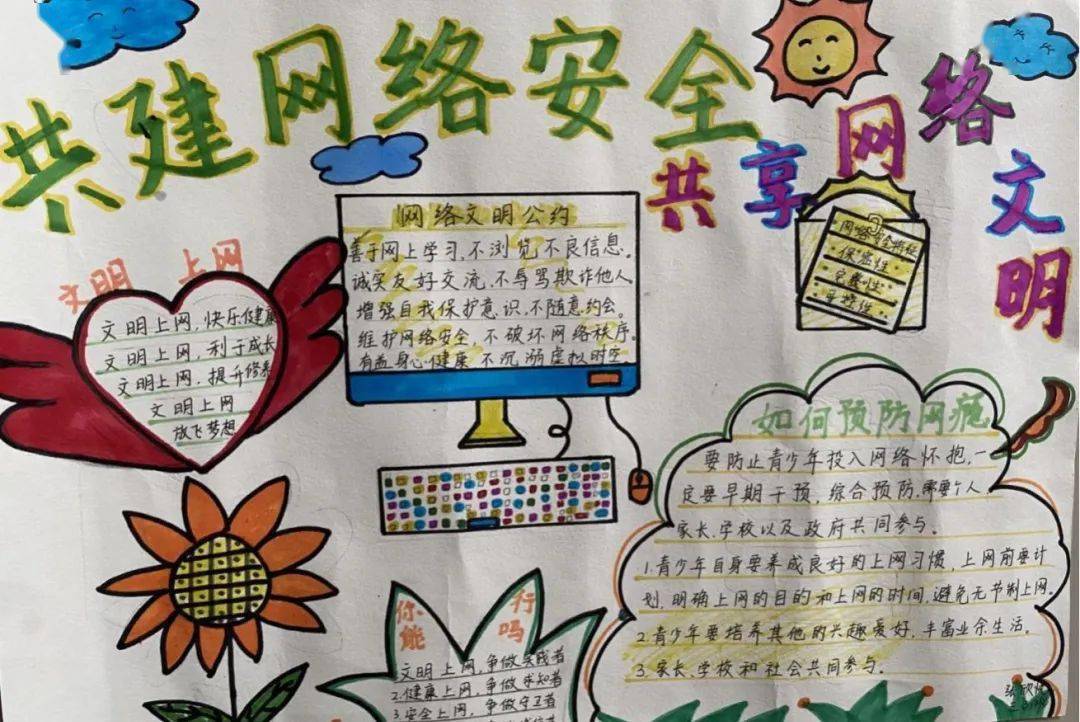 共建网络安全
共享网络文明
文明 上网
文明上网，快乐健康
文明上网，利于成长
文明上网，提升修养
文明上网
放飞梦想
网络文明公约
善于网上学习，不浏览不良信息。
诚实友好交流，不辱骂欺诈他人
增强自我保护意识，不随意约会。
维护网络安全，不破坏网络秩序。
有益身心健康 不沉溺虚拟时空。
保密性
完整性
如何预防网瘾
要防止青少年投入网络怀抱，一
定要早期干预，综合预防，需要个人、
家长、学校以及政府共同参与。
1.青少年自身要养成良好的上网习惯，上网前要计
划，明确上网的目的和上网的时间，避免无节制上网。
2.青少年要培养其他的兴趣爱好，丰富业余生活。
3.家长、学校和社会共同参与。
你能 行吗
1.文明上网，争做实践者
2.健康上网，争做求知者
3.安全上网，争做守卫者